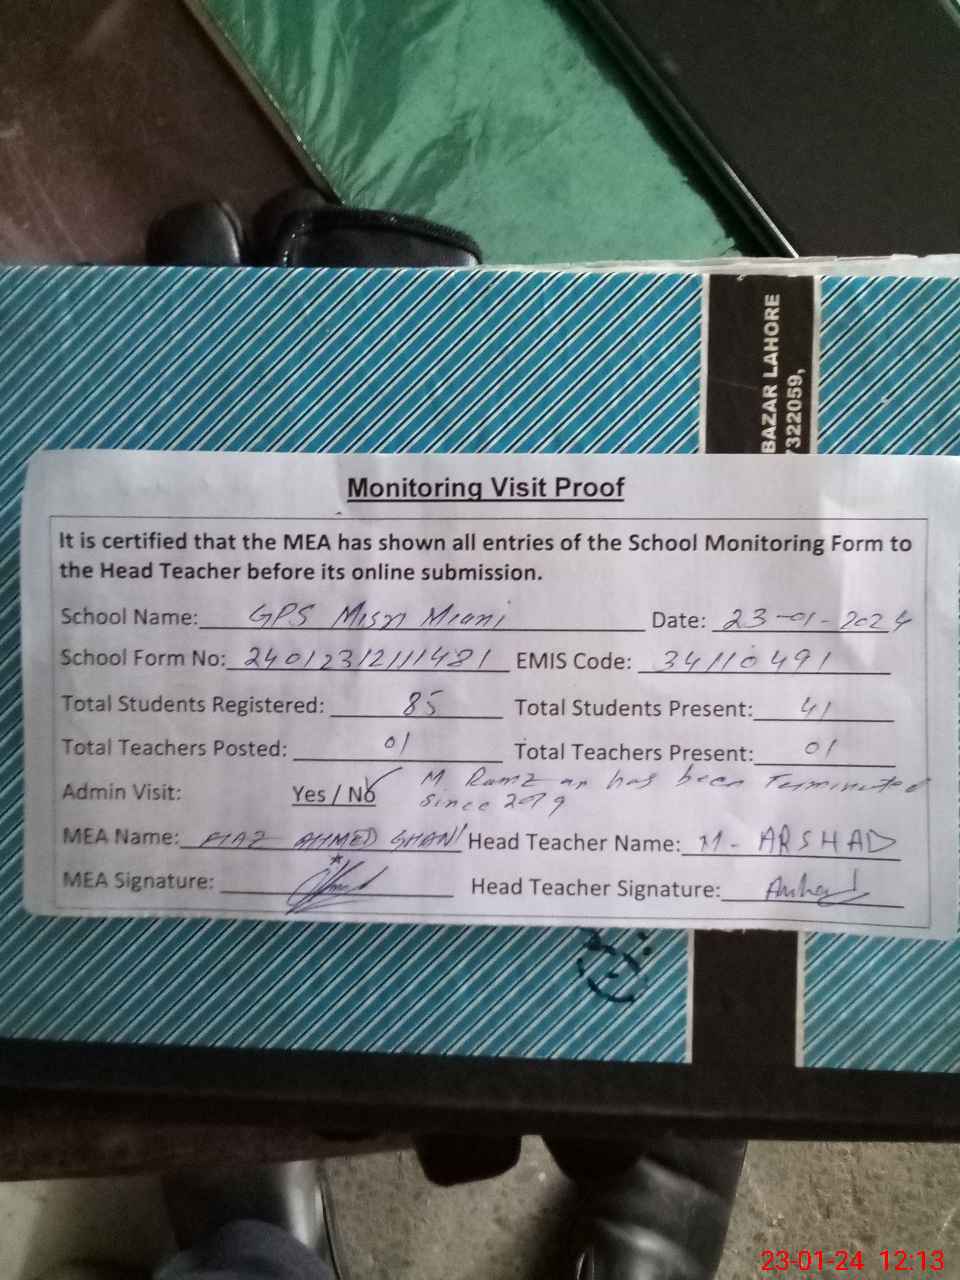 BAZAR LAHORE
7322059,
Monitoring Visit Proof
It is certified that the MEA has shown all entries of the School Monitoring Form to
the Head Teacher before its online submission.
School Name: GPS Misri Miani Date: 23-01-2024
School Form No: 24012312111481 EMIS Code: 34110491
Total Students Registered: 85 Total Students Present: 41
Total Teachers Posted: 01 Total Teachers Present: 01
Admin Visit: Yes / No M. Ramzan has been Terminated
since 2019
MEA Name: FIAZ AHMED GHANI Head Teacher Name: M- ARSHAD
MEA Signature: Head Teacher Signature: Arshad
23-01-24 12:13